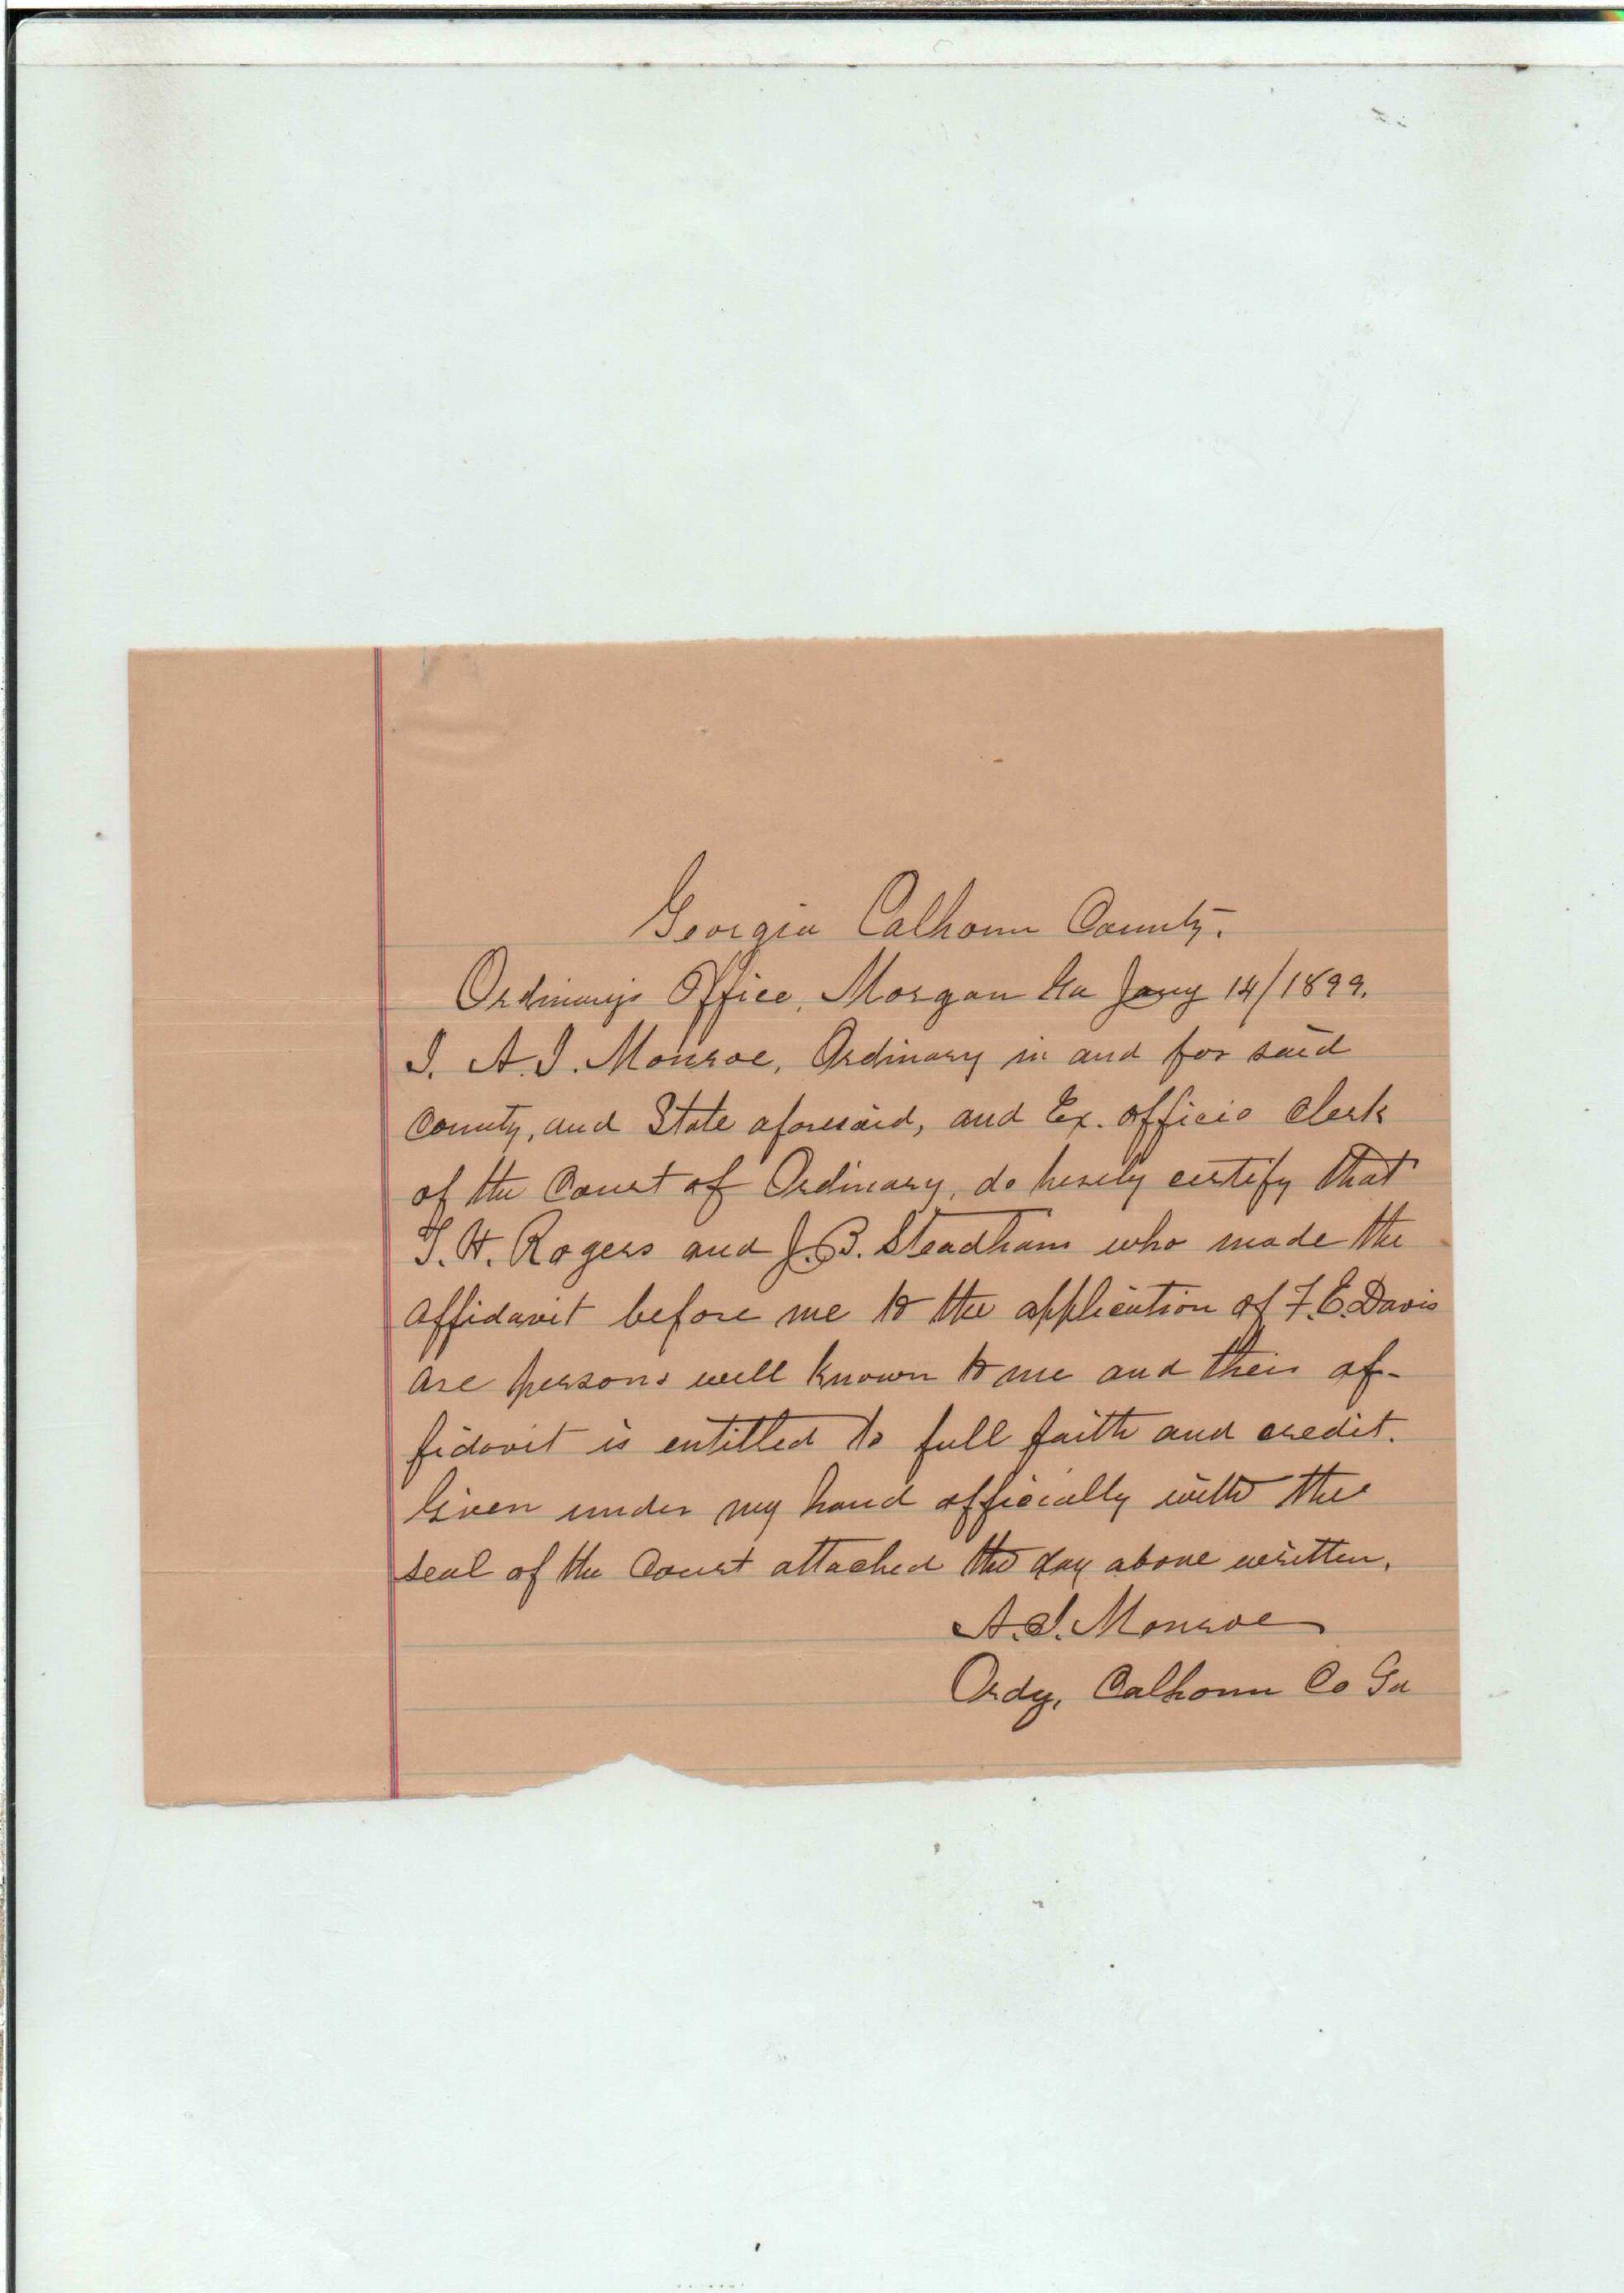 Georgia Calhoun County.
Ordinary's Office, Morgan Ga Jany 14/1899.
I, A. I. Monroe, Ordinary in and for said
County, and State aforesaid, and Ex. officio Clerk
of the Court of Ordinary, do hereby certify that
T. H. Rogers and J. B. Steadham who made the
affidavit before me to the application of F. E. Davis
are persons well known to me and their af-
fidavit is entitled to full faith and credit.
Given under my hand officially with the
seal of the Court attached the day above written.
A. I. Monroe
Ordy, Calhoun Co Ga